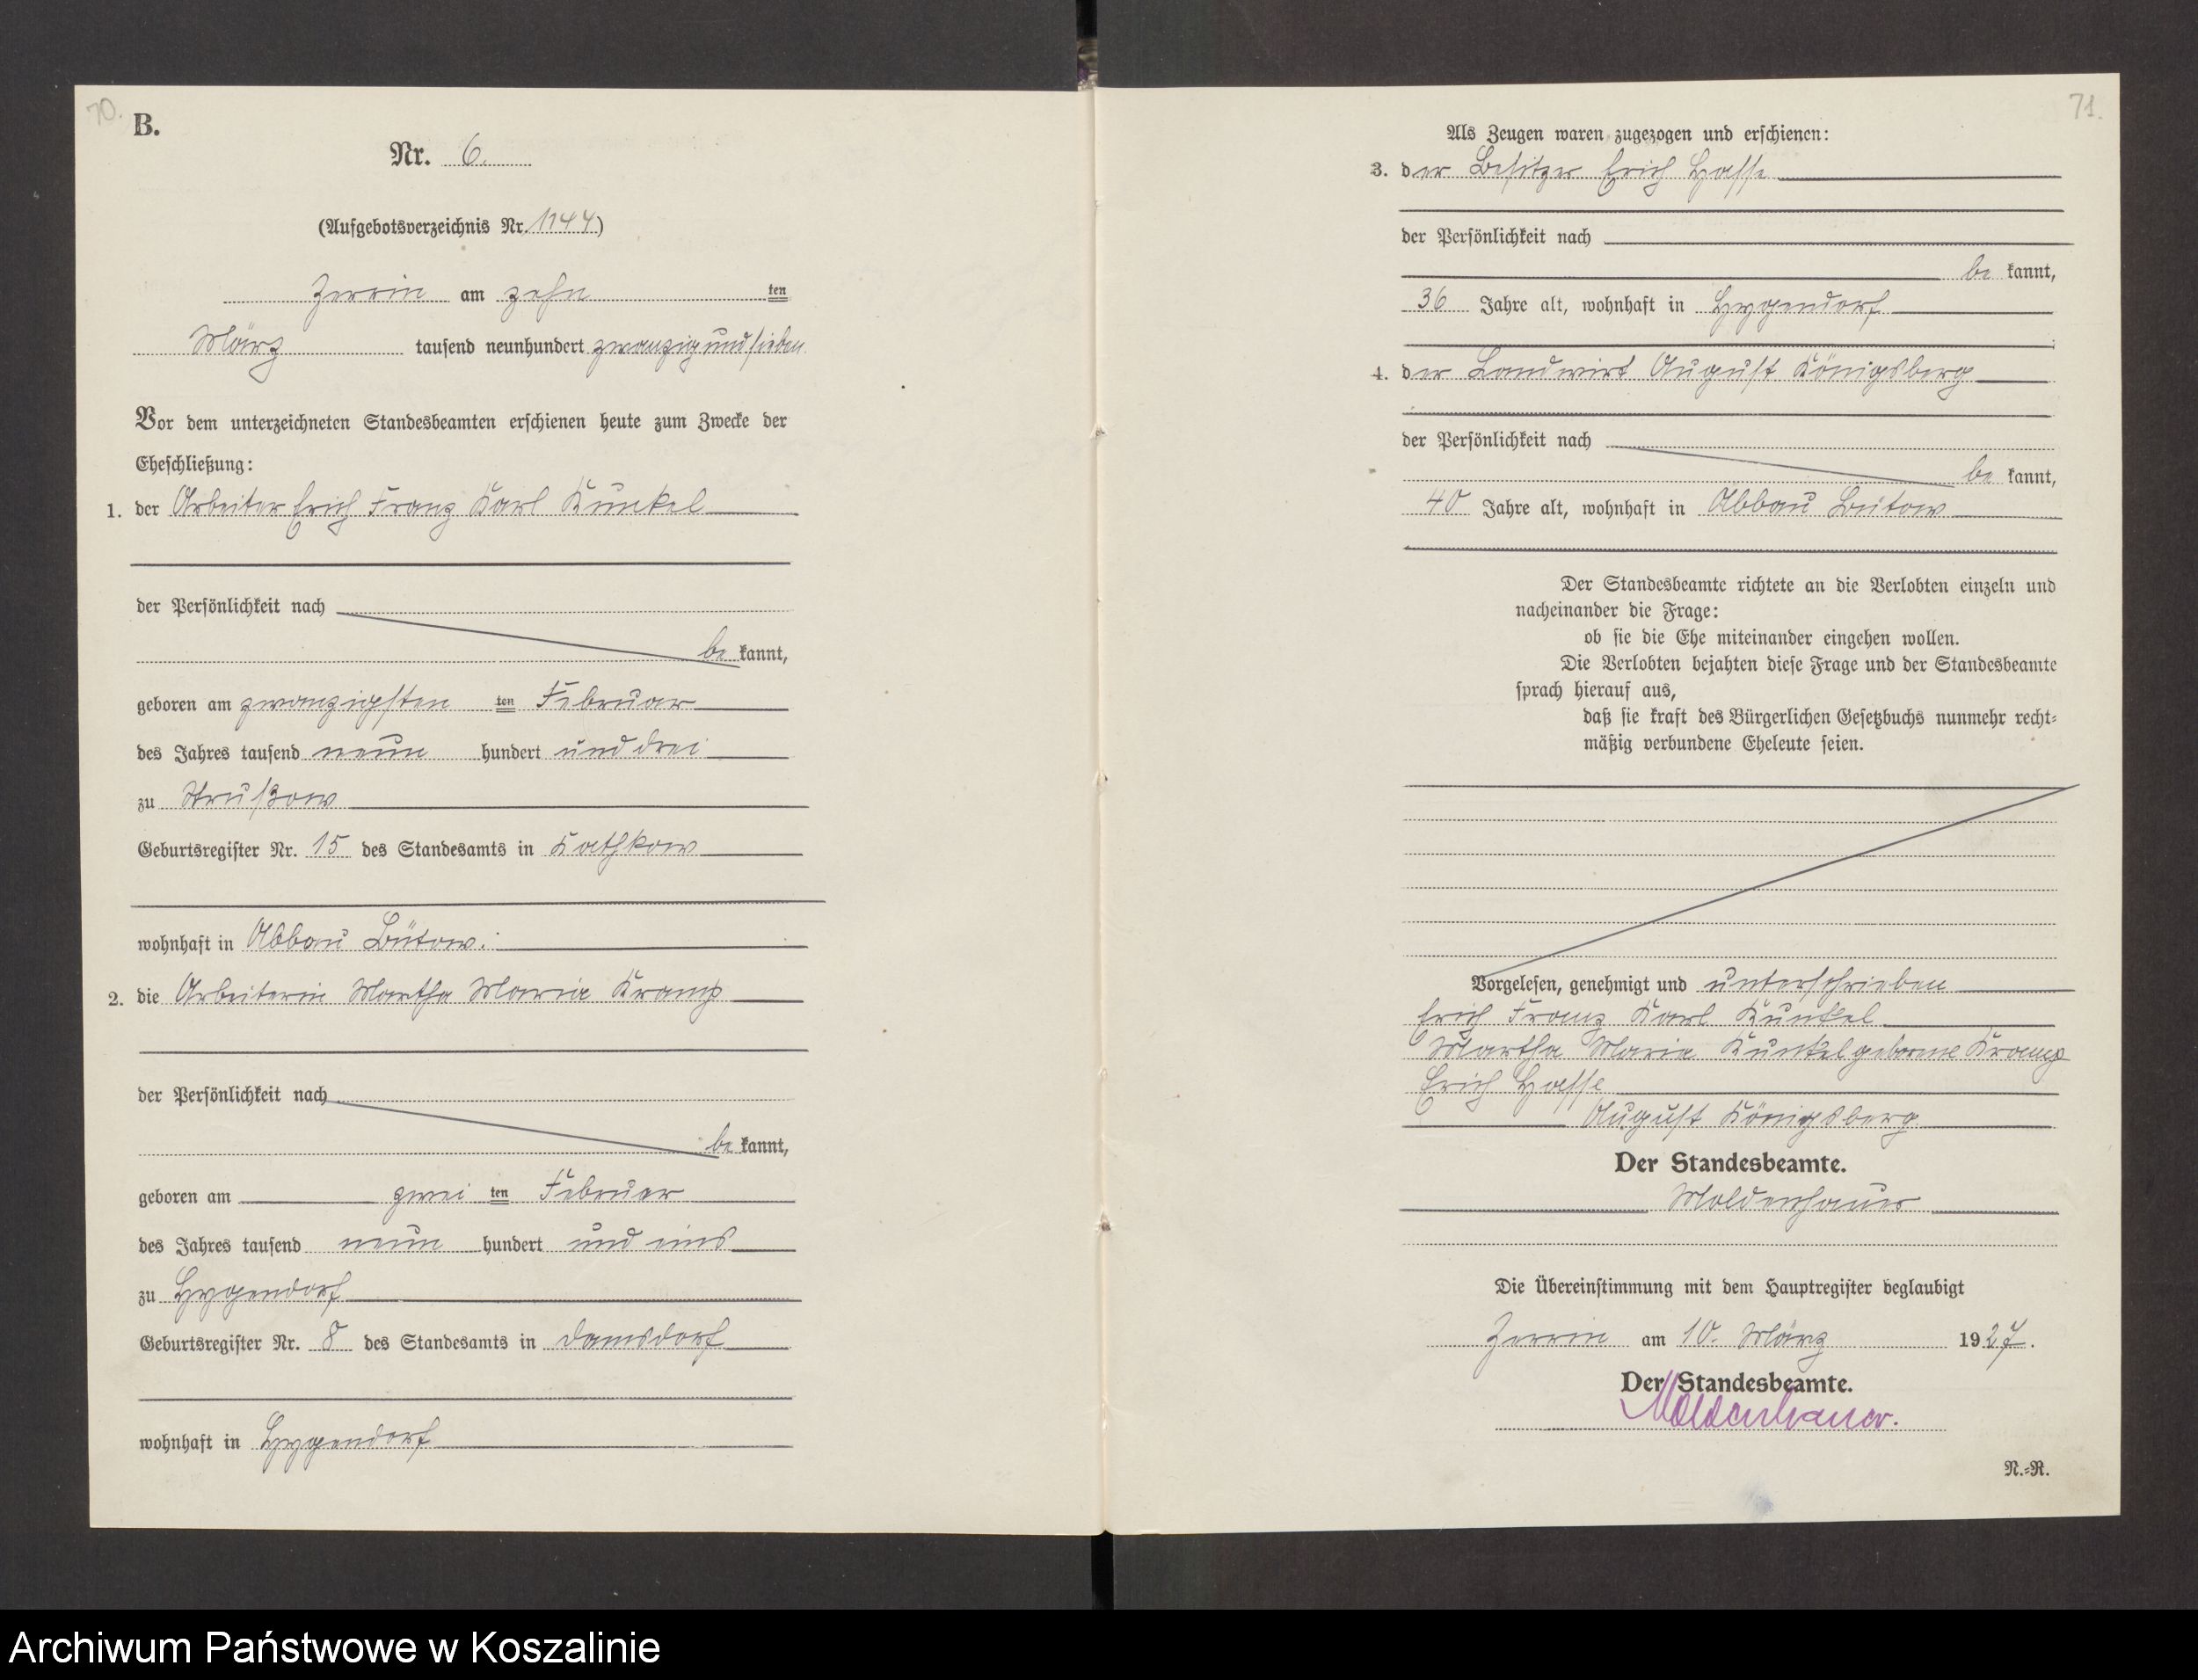 70.
B.
Nr. 6.
(Aufgebotsverzeichnis Nr. 1144)
Zerrin am zehn ten
März tausend neunhundert zwanzig und sieben
Vor dem unterzeichneten Standesbeamten erschienen heute zum Zwecke der
Eheschließung:
1. der Arbeiter Erich Franz Karl Kunkel
der Persönlichkeit nach
be kannt,
geboren am zwanzigsten ten Februar
des Jahres tausend neun hundert und drei
zu Strußow
Geburtsregister Nr. 15 des Standesamts in Kathkow
wohnhaft in Abbau Bütow.
2. die Arbeiterin Martha Maria Kramp
der Persönlichkeit nach
be kannt,
geboren am zwei ten Februar
des Jahres tausend neun hundert und eins
zu Hygendorf
Geburtsregister Nr. 8 des Standesamts in Damsdorf
wohnhaft in Hygendorf
71.
Als Zeugen waren zugezogen und erschienen:
3. der Besitzer Erich Hasse
der Persönlichkeit nach
be kannt,
36 Jahre alt, wohnhaft in Hygendorf
4. der Landwirt August Königsberg
der Persönlichkeit nach
be kannt,
40 Jahre alt, wohnhaft in Abbau Bütow
Der Standesbeamte richtete an die Verlobten einzeln und
nacheinander die Frage:
ob sie die Ehe miteinander eingehen wollen.
Die Verlobten bejahten diese Frage und der Standesbeamte
sprach hierauf aus,
daß sie kraft des Bürgerlichen Gesetzbuchs nunmehr recht-
mäßig verbundene Eheleute seien.
Vorgelesen, genehmigt und unterschrieben
Erich Franz Karl Kunkel
Martha Maria Kunkel geborene Kramp
Erich Hasse
August Königsberg
Der Standesbeamte.
Moldenhauer
Die Übereinstimmung mit dem Hauptregister beglaubigt
Zerrin am 10. März 1927.
Der Standesbeamte.
Moldenhauer.
N.-R.
Archiwum Państwowe w Koszalinie